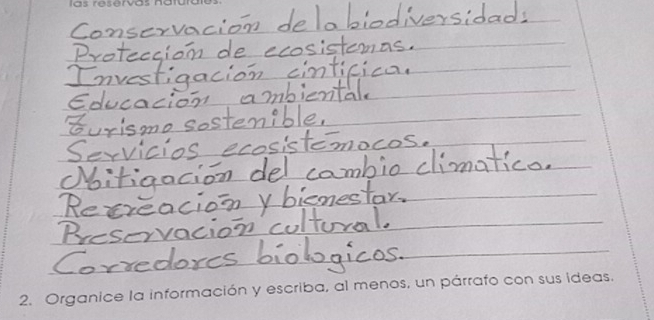 las reservas naturales.
Conservación de la biodiversidad.
Protección de ecosistemas.
Investigación cintifica.
Educación ambiental.
Turismo sostenible.
Servicios ecosistémocos.
Mitigación del cambio climatico.
Recreación y bienestar.
Preservación cultural.
Corredores biologicos.
2. Organice la información y escriba, al menos, un párrafo con sus ideas.